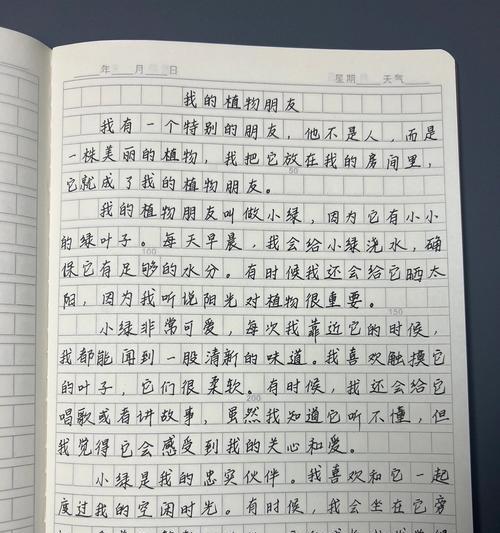 年 月 日 星期 天气
我的植物朋友
我有一个特别的朋友，他不是人，而是
一株美丽的植物，我把它放在我的房间里，
它就成了我的植物朋友。
50
我的植物朋友叫做小绿，因为它有小小
的绿叶子。每天早晨，我会给小绿浇水，确
100
保它有足够的水分。有时候我还会给它晒太
阳，因为我听说阳光对植物很重要。
150
小绿非常可爱，每次我靠近它的时候，
我都能闻到一股清新的味道。我喜欢触摸它
的叶子，它们很柔软。有时候，我还会给它
200
唱歌或者讲故事，虽然我知道它听不懂，但
我觉得它会感受到我的关心和爱。
小绿是我的忠实伙伴。我喜欢和它一起
度过我的空闲时光。有时候，我会坐在它旁